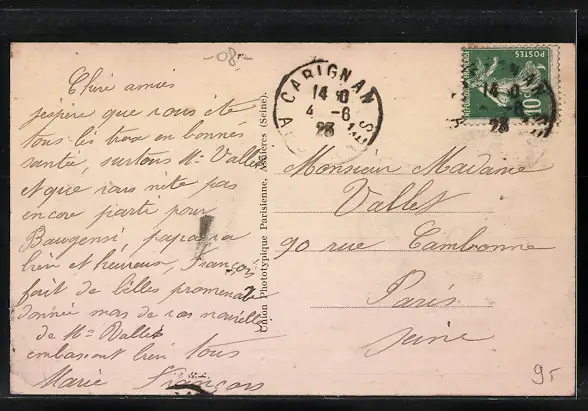 -08-
Chère amies
j'espère que vous ète
tous les trox en bonnes
santée, surtous Mr Vallet
et que vous nète pas
encore parti pour
Baugensi papa va
bien et héureux, François
fait de bélles promenade
donnée mas de vos nouvelles
de Mr Vallet
embasont bien tous
Marie François
Union Phototypique Parisienne, Asnières (Seine).
CARIGNAN
14 0
4 - 6
23
POSTES
10
Monsieur Madame
Vallet
90 rue Cambonne
Paris
seine
9-